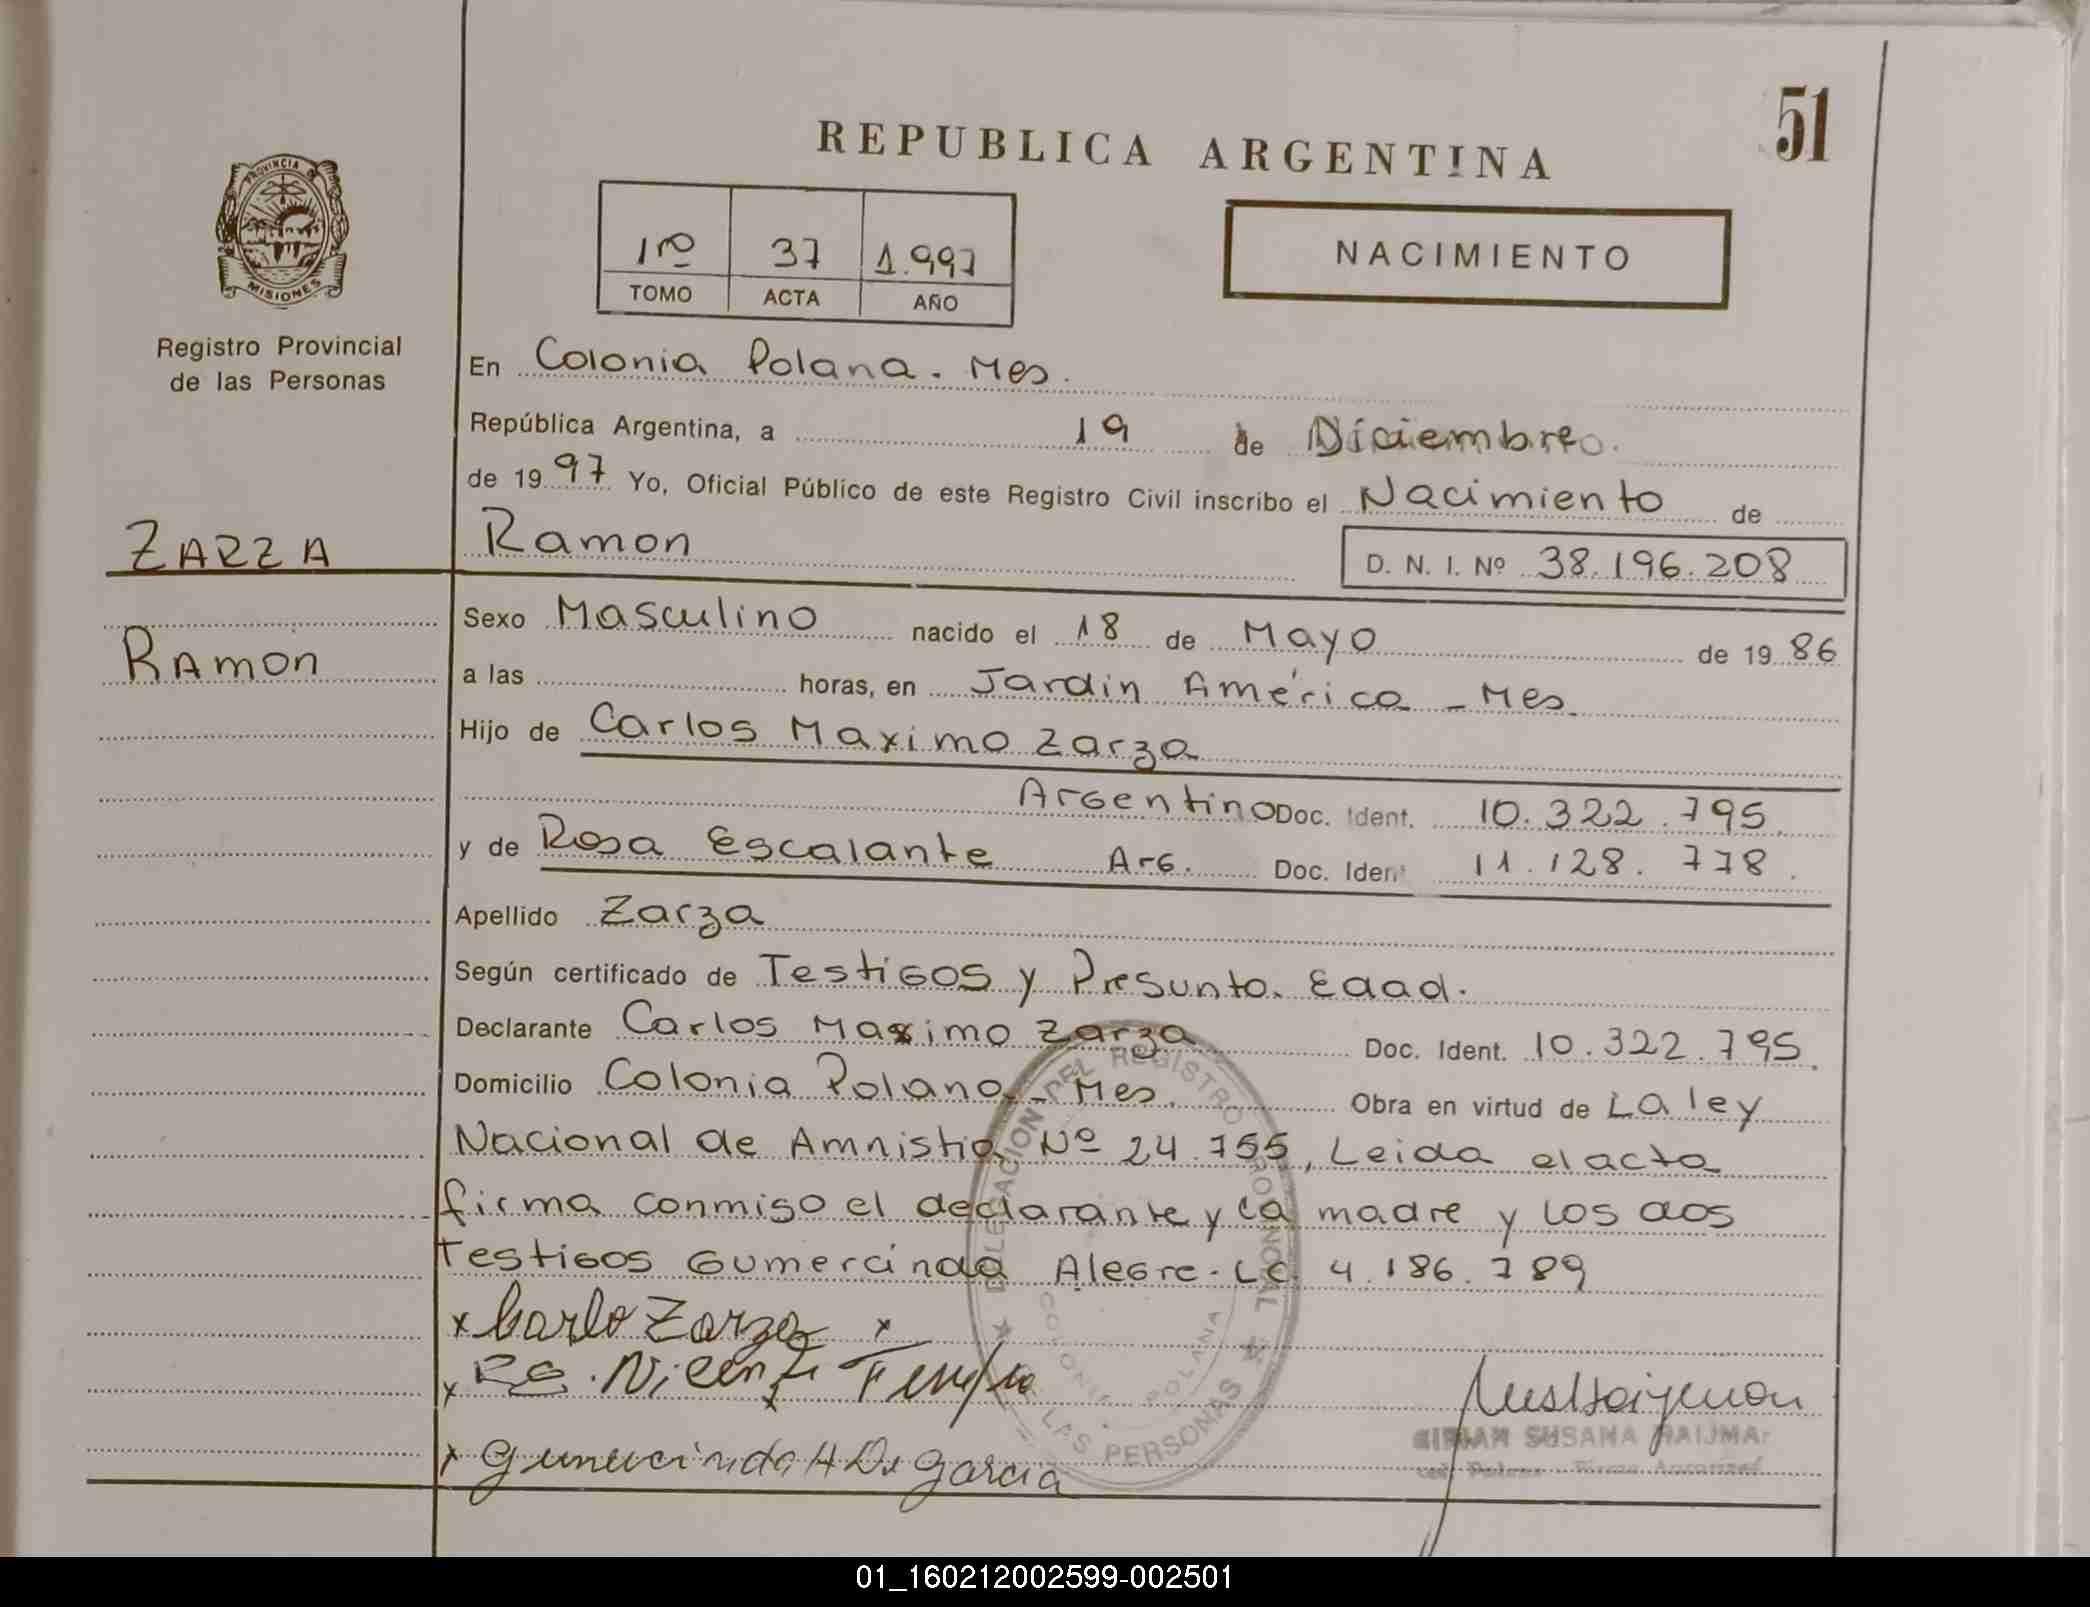 51
REPUBLICA ARGENTINA
PROVINCIA
MISIONES
1ro 37 1.997
TOMO ACTA AÑO
NACIMIENTO
Registro Provincial
de las Personas
En Colonia Polana. Mes.
República Argentina, a 19 de Diciembre.
de 1997 Yo, Oficial Público de este Registro Civil inscribo el Nacimiento de
ZARZA Ramon D. N. I. Nº 38.196.208
Sexo Masculino nacido el 18 de Mayo de 1986
RAMON
a las horas, en Jardin América - Mes.
Hijo de Carlos Maximo Zarza
Argentino Doc. Ident. 10.322.795
y de Rosa Escalante Arg. Doc. Ident 11.128.778.
Apellido Zarza
Según certificado de Testigos y Presunto. Edad.
Declarante Carlos Maximo Zarza Doc. Ident. 10.322.795.
Domicilio Colonia Polana - Mes. Obra en virtud de La ley
Nacional de Amnistia Nº 24.755, Leida el acta
firma conmigo el declarante y la madre y los dos
Testigos Gumercinda Alegre. LC. 4.186.789
x Carlo Zarza x
x RE. Nicente
x Gumercinda H De Garcia
DELEGACION DEL REGISTRO PROVINCIAL
DE LAS PERSONAS
COLONIA POLANA
SUSANA
01_160212002599-002501